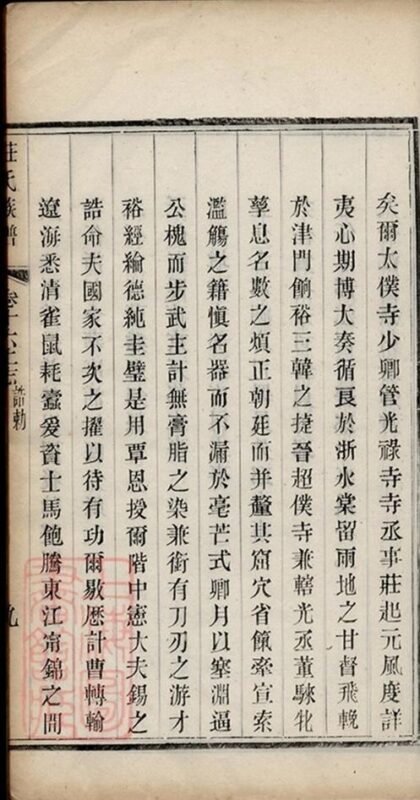 矣爾太僕寺少卿管光祿寺寺丞事莊起元風度詳
夷心期博大奏循良於浙水棠留兩地之甘督飛輓
於津門餉裕三韓之捷晉超僕寺兼轄光丞董騋牝
孳息名數之煩正朝廷而并釐其窟穴省餼牽宣索
濫觴之籍慎名器而不漏於毫芒式卿月以塞淵逼
公槐而步武主計無膏脂之染兼銜有刀刃之游才
裕經綸德純圭璧是用覃恩授爾階中憲大夫錫之
誥命夫國家不次之擢以待有功爾敭歷計曹轉輸
遼海悉清雀鼠耗蠹爰資士馬飽騰東江甯錦之間
莊氏族譜
卷十六之三
誥勅
九